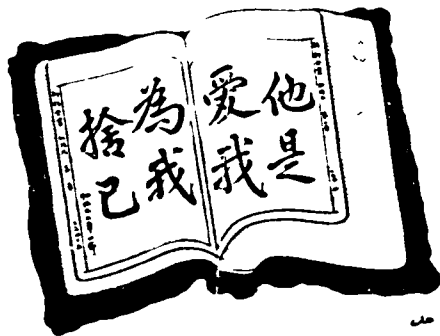 他是
愛我
為我
捨己